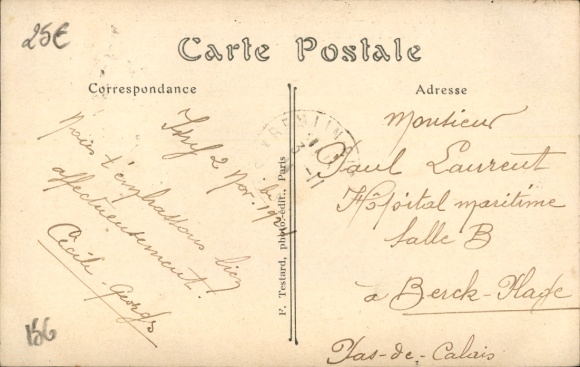 25€
Carte Postale
Correspondance
Adresse
Ivry 2 Nov.
Nous t'embrassons bien
affectueusement.
Cécile-Georges
156
F. Testard, photo-édit., Paris
KREMLIN
Monsieur
Paul Laurent
Hôpital maritime
Salle B
à Berck-Plage
Pas-de-Calais